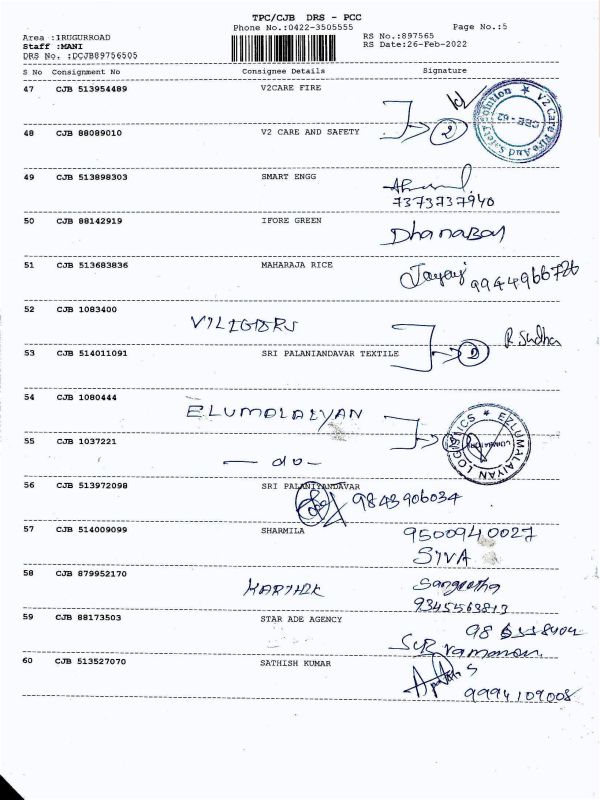 TPC/CJB DRS - PCC
Phone No.:0422-3505555
Page No.:5
Area :IRUGURROAD
RS No.:897565
Staff :MANI
RS Date:26-Feb-2022
DRS No. :DCJB89756505
S No Consignment No Consignee Details Signature
47 CJB 513954489 V2CARE FIRE
V2 Care Fire And Safety Solution
CBE - 62
48 CJB 88089010 V2 CARE AND SAFETY 2
49 CJB 513898303 SMART ENGG
7373737940
50 CJB 88142919 IFORE GREEN
51 CJB 513683836 MAHARAJA RICE
9944966726
52 CJB 1083400
R. Sudha
53 CJB 514011091 SRI PALANIANDAVAR TEXTILE 2
54 CJB 1080444 ELUMALAIYAN
EZLUMALAIYAN LOGISTICS
55 CJB 1037221 — do —
56 CJB 513972098 SRI PALANIYANDAVAR
9843906034
57 CJB 514009099 SHARMILA 9500940027
SIVA
58 CJB 879952170 KARTHIK Sangeetha
9345563813
59 CJB 88173503 STAR ADE AGENCY
60 CJB 513527070 SATHISH KUMAR
9994109008